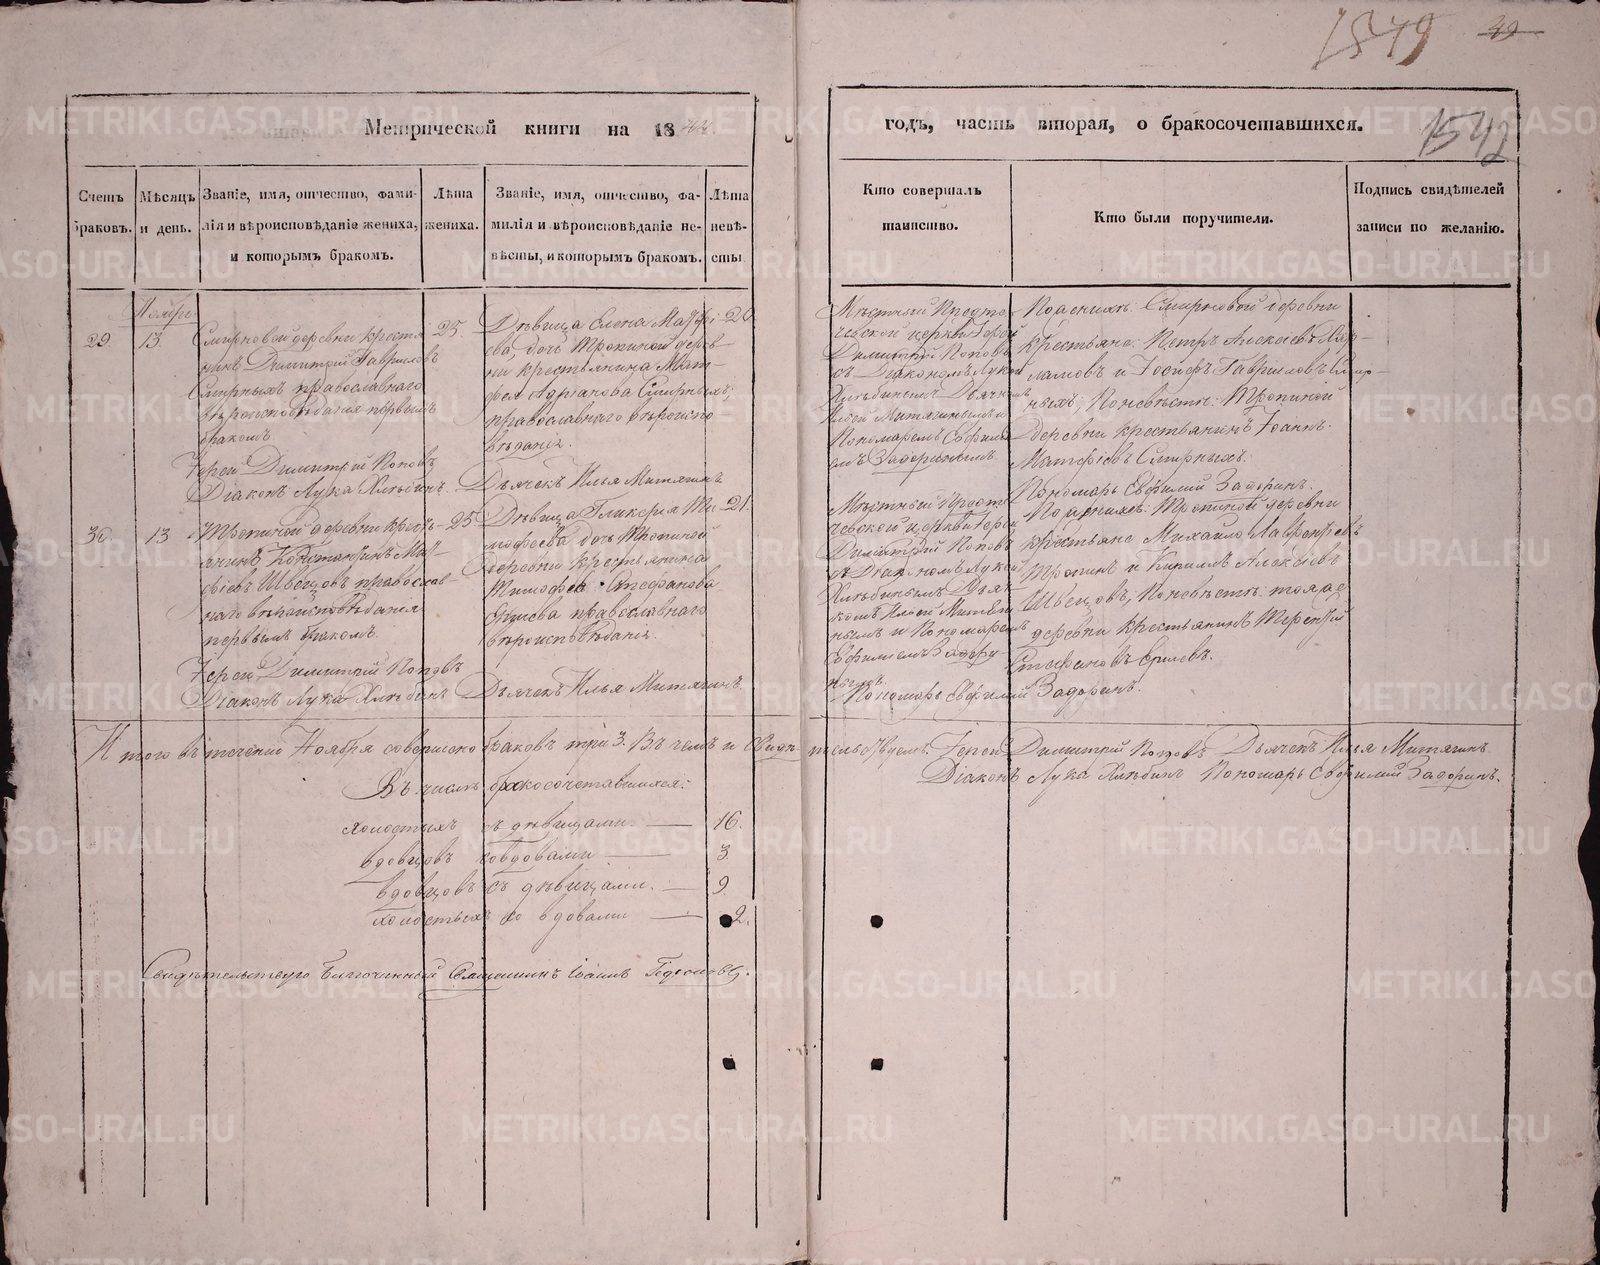 1549 49
Метрической книги на 1844
годъ, часть вторая, о бракосочетавшихся.
1542
Счетъ браковъ.
Мѣсяцъ и день.
Званіе, имя, отчество, фами-
лія и вѣроисповѣданіе жениха,
и которымъ бракомъ.
Лѣта
жениха.
Званіе, имя, отчество, фа-
милія и вѣроисповѣданіе не-
вѣсты, и которымъ бракомъ.
Лѣта
невѣ-
сты
Кто совершалъ
таинство.
Кто были поручители.
Подпись свидѣтелей
записи по желанію.
Ноября
29
13
Смирновой деревни крестья
нинъ Димитрій Гавриловъ
Смирныхъ православнаго
вѣроисповѣданія первымъ
бракомъ
25.
Дѣвица Елена Матѳі
ева, дочь Тропиной дерев-
ни крестьянина Мат-
ѳея Адріанова Смирныхъ;
православнаго вѣроиспо-
вѣданія.
20
Мѣстный Предте
чевской церкви Іерей
Димитрій Поповъ
съ Діакономъ Лукой
Хлѣбинымъ Дьячкомъ
Ильей Митягинымъ и
Пономаремъ Евфимі
емъ Задоринымъ.
По женихѣ: Смирновой деревни
крестьяне: Петръ Алексѣевъ Вар-
ламовъ и Іосифъ Гавриловъ Смир-
ныхъ; По невѣстѣ: Тропиной
деревни крестьянинъ Іоаннъ
Матѳіевъ Смирныхъ.
Іерей Димитрій Поповъ
Діаконъ Лука Хлѣбинъ.
Дьячекъ Илья Митягинъ
Пономарь Евфимій Задоринъ.
30.
13
Тропиной деревни кресть-
янинъ Константинъ Мат-
ѳіевъ Швецовъ православ-
наго вѣроисповѣданія
первымъ бракомъ.
25
Дѣвица Гликерія Ти
моѳеева дочь Тропиной
деревни крестьянина
Тимоѳея Стефанова
православнаго
вѣроисповѣданія.
21.
Мѣстный Предте
чевской церкви Іерей
Димитрій Поповъ
съ Діакономъ Лукой
Хлѣбинымъ Дьяч-
комъ Ильей Митяги
нымъ и Пономаремъ
Евфиміемъ Задори-
нымъ.
По женихѣ: Тропиной деревни
крестьяне Михаило Лаврентьевъ
Тропинъ и Кириллъ Алексѣевъ
Швецовъ, По невѣстѣ: тояже
деревни крестьянинъ Терентій
Стефановъ
Іерей Димитрій Поповъ
Діаконъ Лука Хлѣбинъ
Дьячекъ Илья Митягинъ.
Пономарь Евфимій Задоринъ.
Итого въ теченіи Ноября совершено браковъ три 3. Въ чемъ и свидѣ-
тельствуемъ: Іерей Димитрій Поповъ Дьячекъ Илья Митягинъ
Діаконъ Лука Хлѣбинъ Пономарь Евфимій Задоринъ.
Въ числѣ бракосочетавшихся:
холостыхъ съ дѣвицами. — 16.
вдовцовъ со вдовами — 3
вдовцовъ съ дѣвицами. — 9.
холостыхъ со вдовами — 2.
Свидѣтельствую Благочинный Священникъ Іоаннъ
METRIKI.GASO-URAL.RU